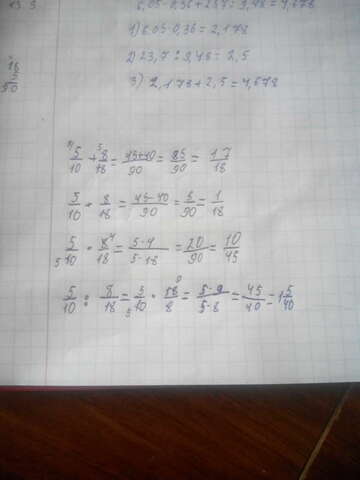 6,05·0,36+23,7:9,48=4,678
1) 6.05·0,36=2,178
2) 23,7:9,48=2,5
3) 2,178+2,5=4,678
18
5
90
5/10+8/18=45+40/90=85/90=17/18
5/10-8/18=45-40/90=5/90=1/18
5/10·8/18=5·4/5·18=20/90=10/45
5/10:8/18=5/10·18/8=5·9/5·8=45/40=1 5/40